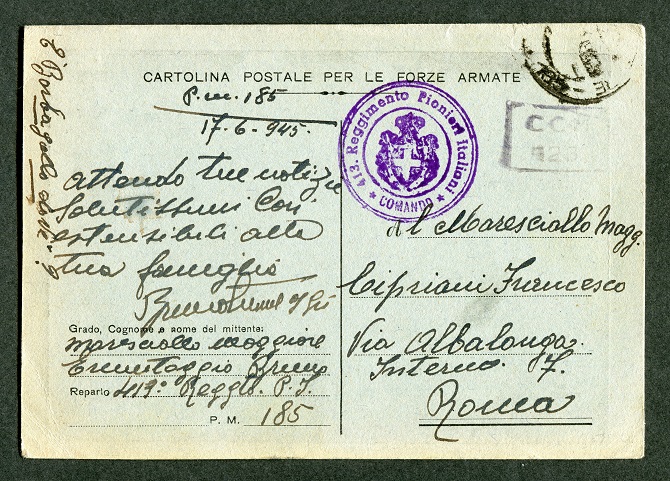 CARTOLINA POSTALE PER LE FORZE ARMATE
P.M. 185
17-6-945.
413. Reggimento Pionieri Italiani
COMANDO
attendo tue notizie
Salutissimi con
estensibili alla
tua famiglia
Grado, Cognome e nome del mittente:
Maresciallo Maggiore
Bruno
Reparto 419° Reggto P. I.
P. M. 185
al Maresciallo Magg.
Cipriani Francesco
Via Albalonga.
Interno 7.
Roma